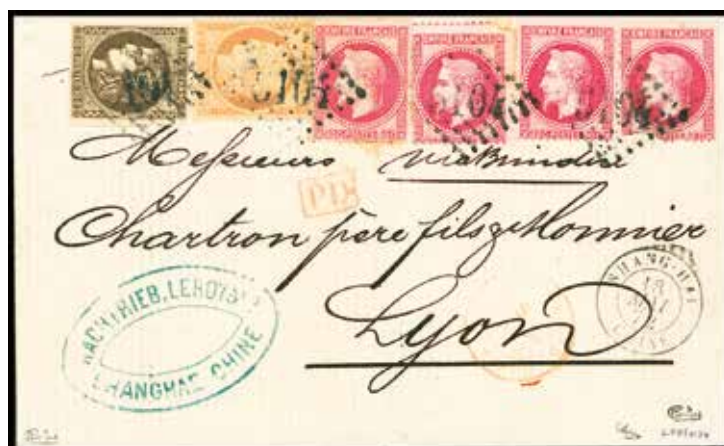 EMPIRE FRANCAIS EMPIRE FRANCAIS EMPIRE FRANCAIS EMPIRE FRANCAIS
5104 5104 5104
Messieurs via Brindisi
P.D.
Chartron père fils & Monnier
SHANG-HAI
CHINE
NACHTRIEB, LEROY &
SHANGHAE CHINE
Lyon